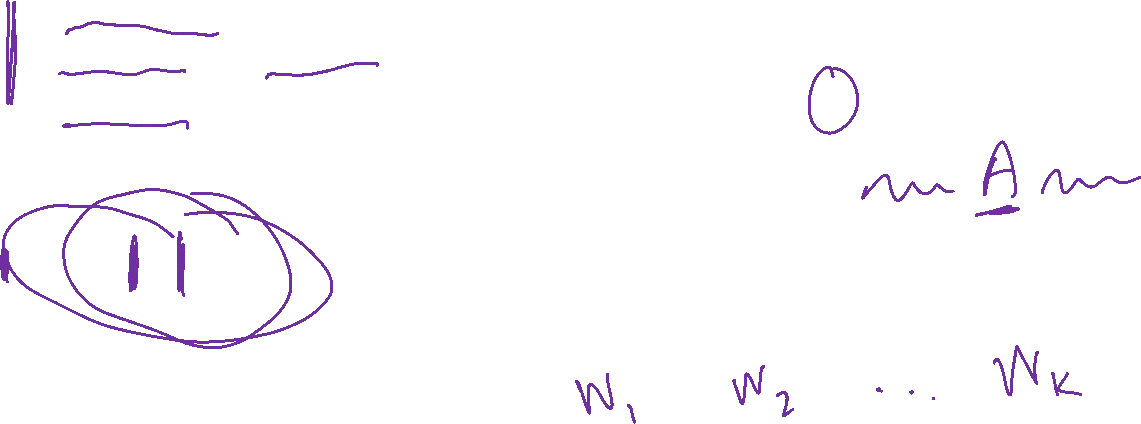 O
A
W1 W2 ... WK